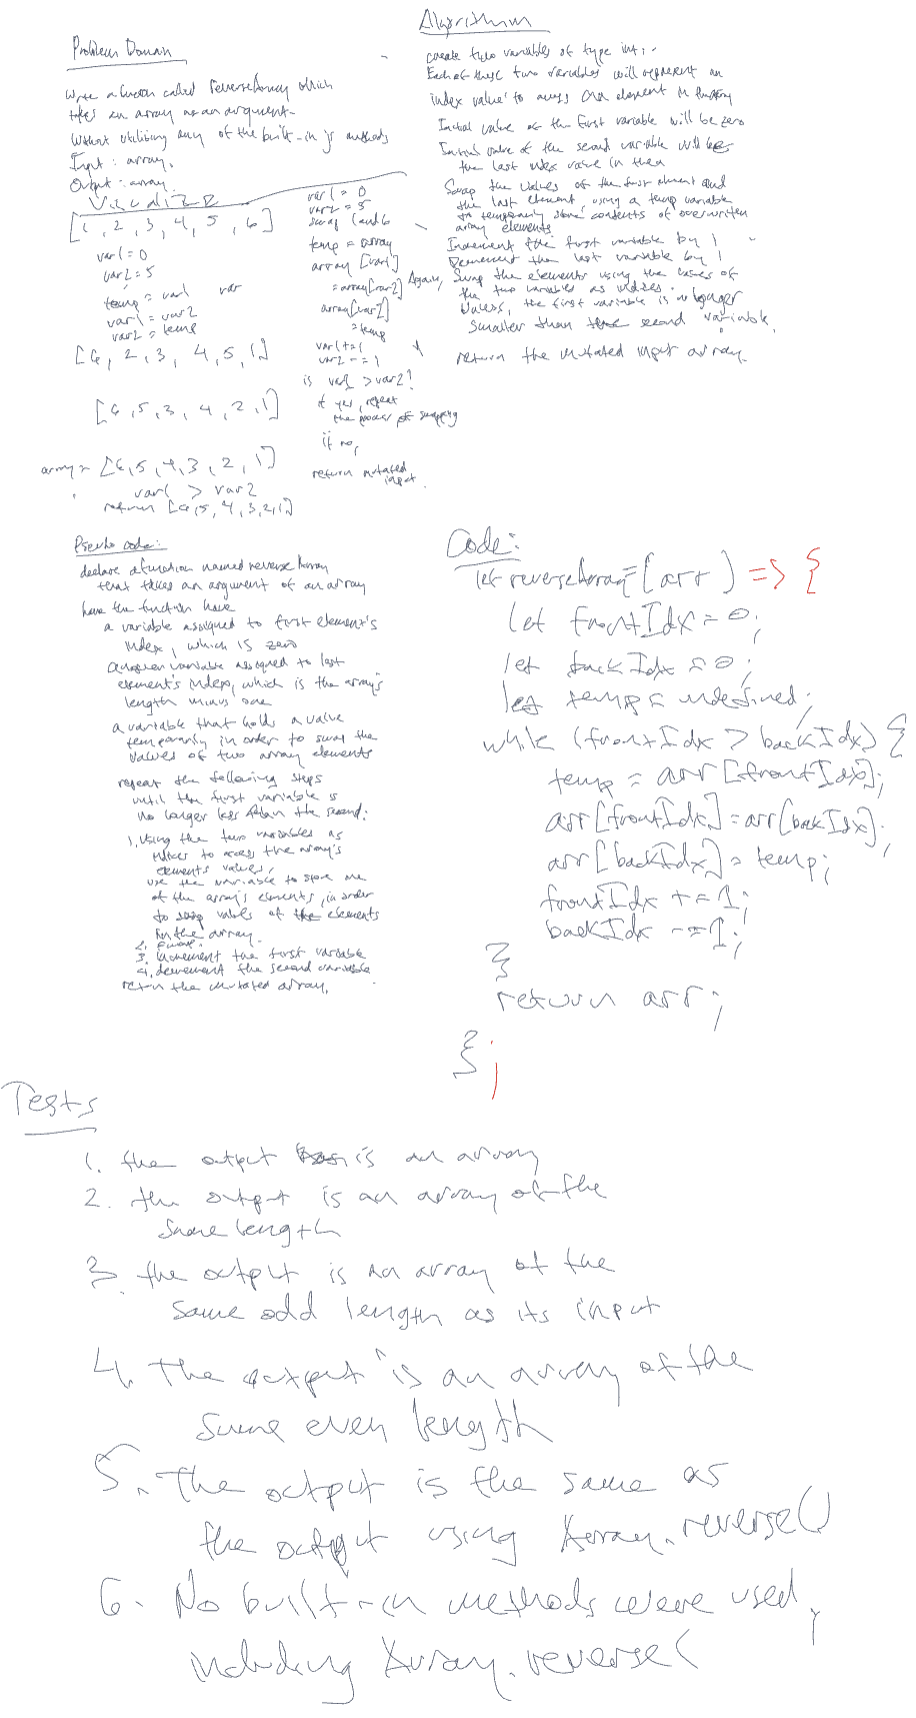 Problem Domain
Write a function called reverseArray which
takes an array as an argument.
Without utilizing any of the built-in js methods
Input: array.
Output: array.
Visualize
[1, 2, 3, 4, 5, 6]
var1 = 0
var2 = 5
temp = var1 var
var1 = var2
var2 = temp
[6, 2, 3, 4, 5, 1]
[6, 5, 3, 4, 2, 1]
array = [6, 5, 4, 3, 2, 1]
var1 > var2
return [6, 5, 4, 3, 2, 1]
var1 = 0
var2 = 5
swap 1 and 6
temp = array
array [var1]
= array[var2]
array[var2]
= temp
var1 += 1
var2 -= 1
is var1 > var2?
if yes, repeat
the process of swapping
if no,
return mutated
input.
Algorithm
- create two variables of type int.
Each of these two variables will represent an
index value to access one element in the array
Initial value of the first variable will be zero
Initial value of the second variable will be
the last index value in the
Swap the values of the first element and
the last element, using a temp variable
to temporarily store contents of overwritten
array elements
Increment the first variable by 1
Decrement the last variable by 1
Again, Swap the elements using the values of
the two variables as indices.
Unless, the first variable is no longer
smaller than the second variable.
return the mutated input array.
Pseudo code:
declare a function named reverse Array
that takes an argument of an array
have the function have
a variable assigned to first element's
index, which is zero
another variable assigned to last
element's index, which is the array's
length minus one
a variable that holds a value
temporarily in order to swap the
values of two array elements
repeat the following steps
until the first variable is
no longer less than the second:
1. Using the two variables as
indices to access the array's
elements values,
use the variable to store one
of the array's elements, in order
to swap values of the elements
in the array.
2.
3. increment the first variable
4. decrement the second variable
return the mutated array.
Code:
let reverseArray = (arr) => {
let frontIdx = 0;
let backIdx = 0;
let temp = undefined;
while (frontIdx > backIdx) {
temp = arr[frontIdx];
arr[frontIdx] = arr[backIdx];
arr[backIdx] = temp;
frontIdx += 1;
backIdx -= 1;
}
return arr;
};
Tests
1. the output is an array
2. the output is an array of the
same length
3. the output is an array of the
same odd length as its input
4. The output is an array of the
same even length
5. The output is the same as
the output using Array.reverse()
6. No built-in methods were used,
including Array.reverse(